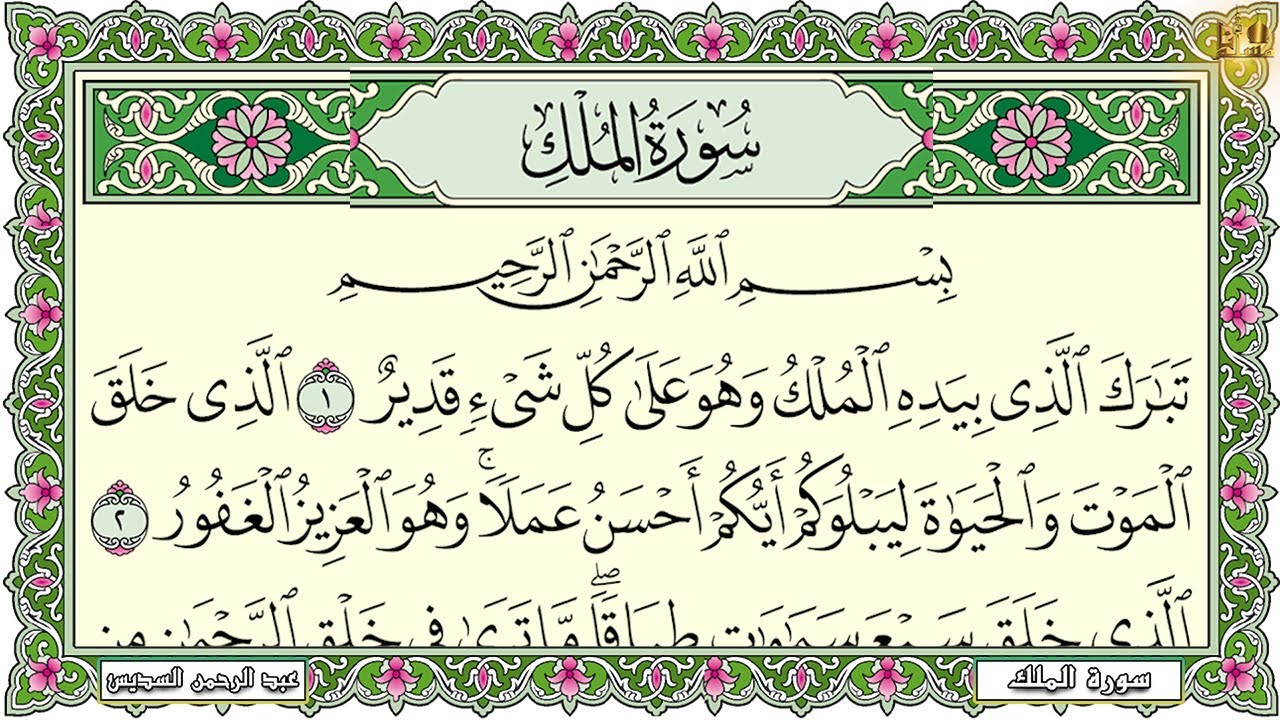 سُورَةُ الْمُلْكِ
بِسْمِ ٱللَّهِ ٱلرَّحْمَٰنِ ٱلرَّحِيمِ
تَبَٰرَكَ ٱلَّذِى بِيَدِهِ ٱلْمُلْكُ وَهُوَ عَلَىٰ كُلِّ شَىْءٍ قَدِيرٌ ١ ٱلَّذِى خَلَقَ
ٱلْمَوْتَ وَٱلْحَيَوٰةَ لِيَبْلُوَكُمْ أَيُّكُمْ أَحْسَنُ عَمَلًا ۚ وَهُوَ ٱلْعَزِيزُ ٱلْغَفُورُ ٢
ٱلَّذِى خَلَقَ سَبْعَ سَمَٰوَٰتٍ طِبَاقًا ۖ مَّا تَرَىٰ فِى خَلْقِ ٱلرَّحْمَٰنِ مِن
سورة الملك
عبد الرحمن السديس